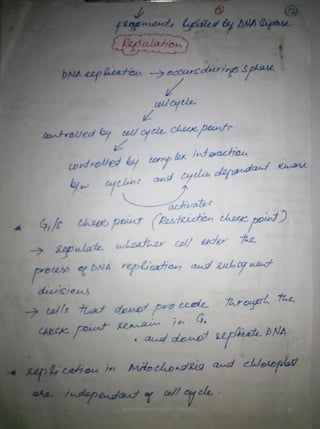 fragments ligated by DNA ligase
Regulation
DNA replication → occurs during S phase
cell cycle
controlled by cell cycle check points
controlled by complex interaction
b/w cyclins and cyclin dependant kinase
activates
* G1/S check point (Restriction check point)
→ regulate wheather cell enter the
process of DNA replication and subsquent
divisions
→ cells that donot proceede through the
check point remain in G.
. and donot replicate DNA
* replication in Mitochondria and chloroplast
are independant of cell cycle.